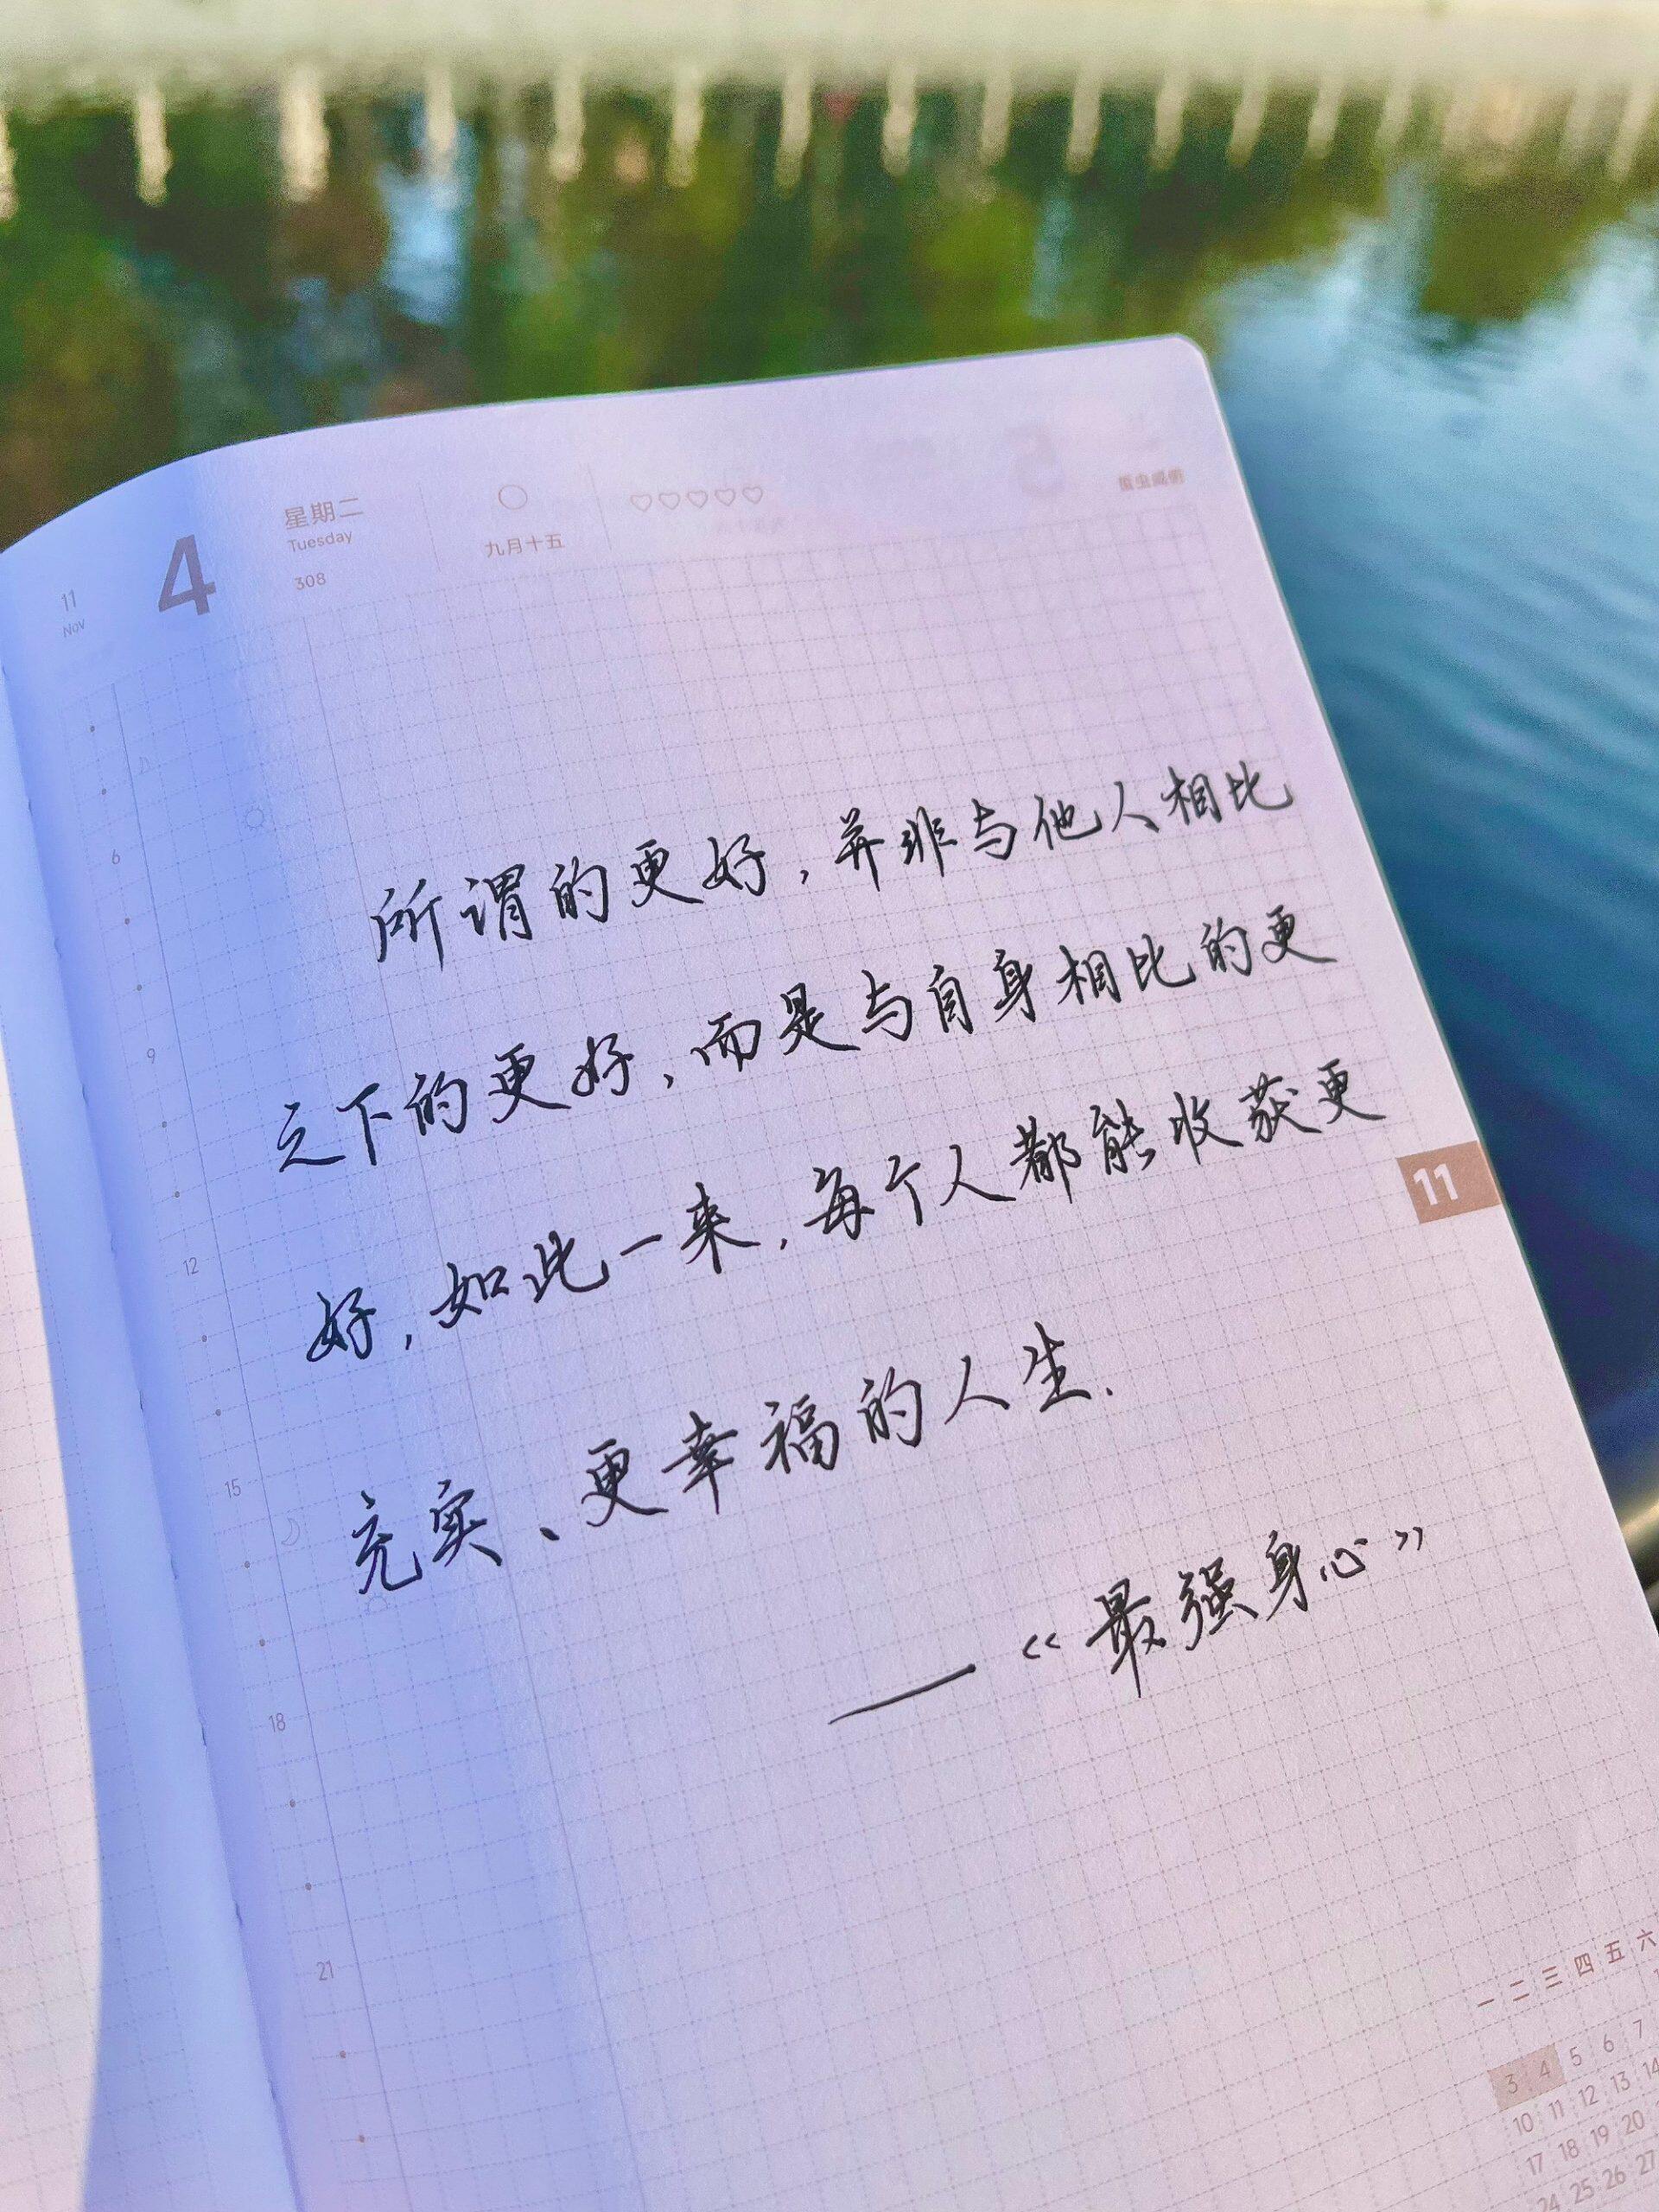 11
Nov
4
星期二
Tuesday
308
九月十五
蛰虫咸俯
6
9
12
15
18
21
所谓的更好,并非与他人相比
之下的更好,而是与自身相比的更
好,如此一来,每个人都能收获更
充实、更幸福的人生.
—《最强身心》
11
一 二 三 四 五 六
3 4 5 6 7
10 11 12 13 14
17 18 19 20
24 25 26 27